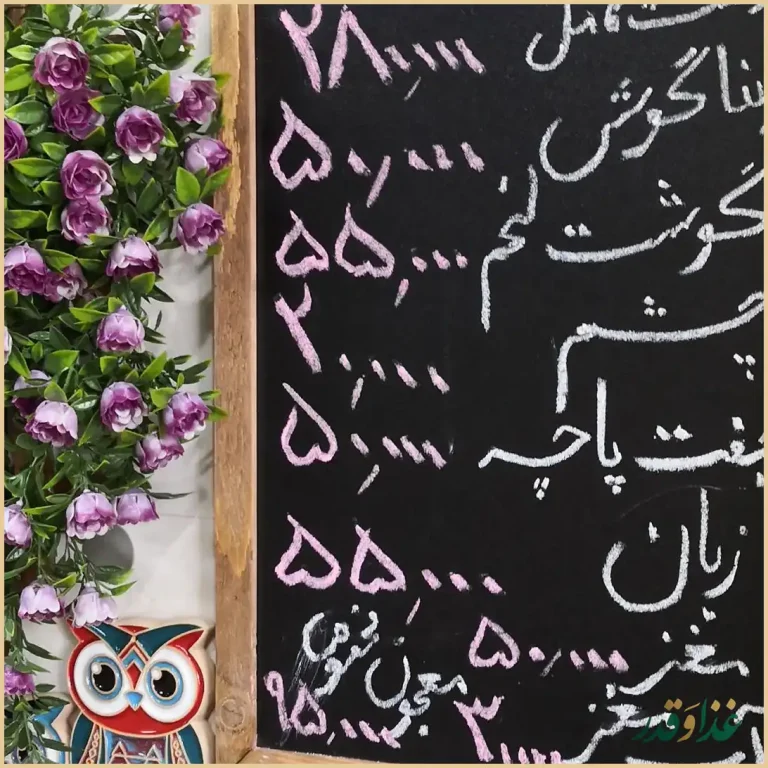 کامل ۲۸۰,۰۰۰
بناگوش ۵۰,۰۰۰
گوشت لخم ۵۵,۰۰۰
چشم ۲۰,۰۰۰
جفت پاچه ۵۰,۰۰۰
زبان ۵۵,۰۰۰
مغز ۵۰,۰۰۰
معجون
مغز
۹۵,۰۰۰
غذا و قدر